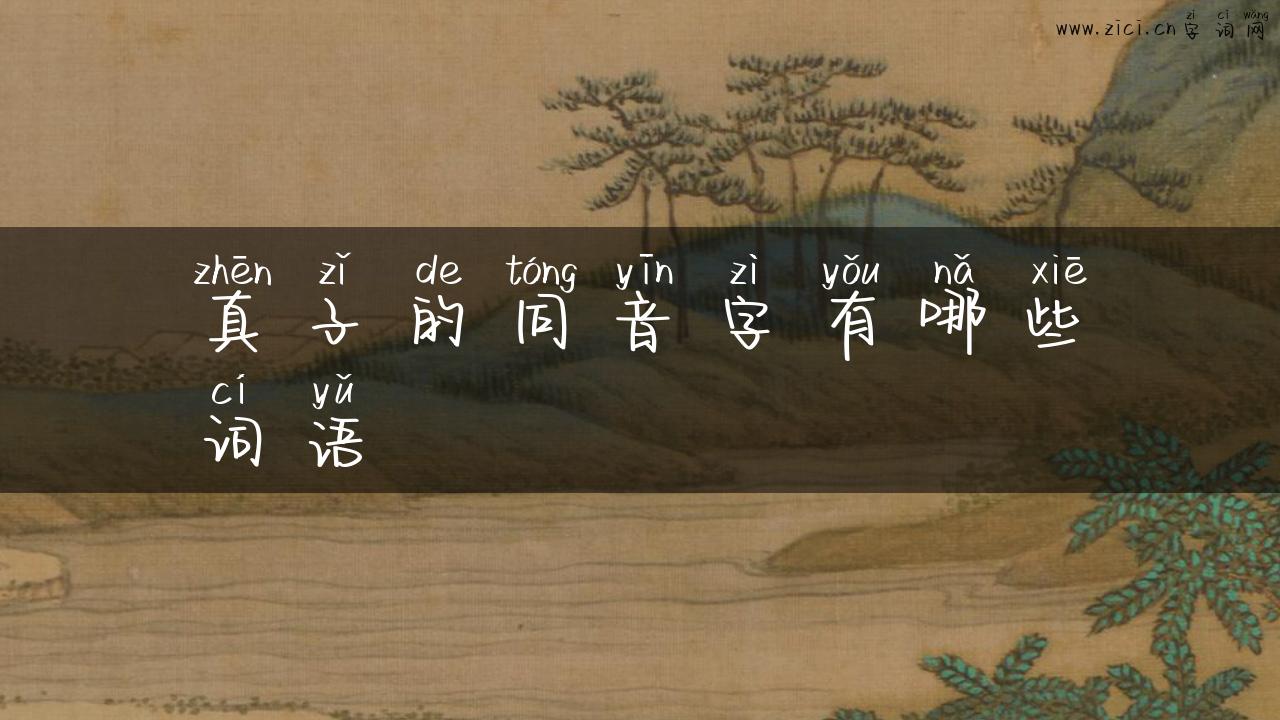 zì cí wǎng
www.zici.cn 字 词 网
zhēn zǐ de tóng yīn zì yǒu nǎ xiē
真 子 的 同 音 字 有 哪 些
cí yǔ
词 语